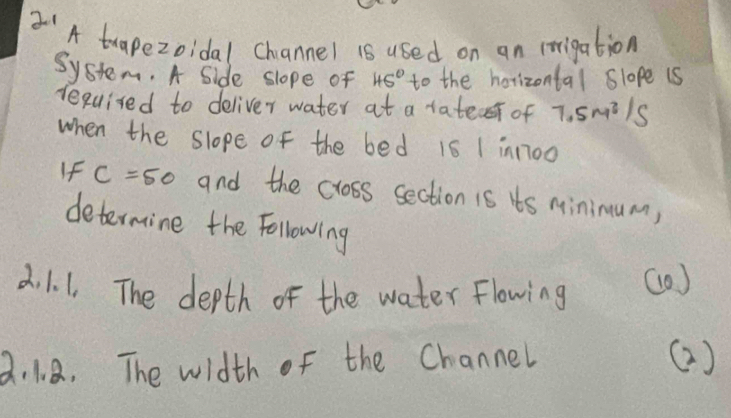 2.1 A trapezoidal channel is used on an irrigation
system. A side slope of 45° to the horizontal slope is
required to deliver water at a rate of 7.5m³/s
when the slope of the bed is 1 in 1700
If C = 50 and the cross section is its minimum,
determine the Following
2.1.1. The depth of the water Flowing (10)
2.1.2. The width of the Channel (2)